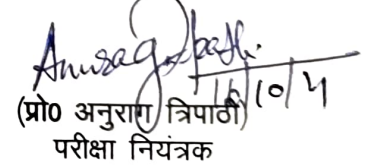 Anurag Tripathi
(प्रो0 अनुराग त्रिपाठी)
परीक्षा नियंत्रक